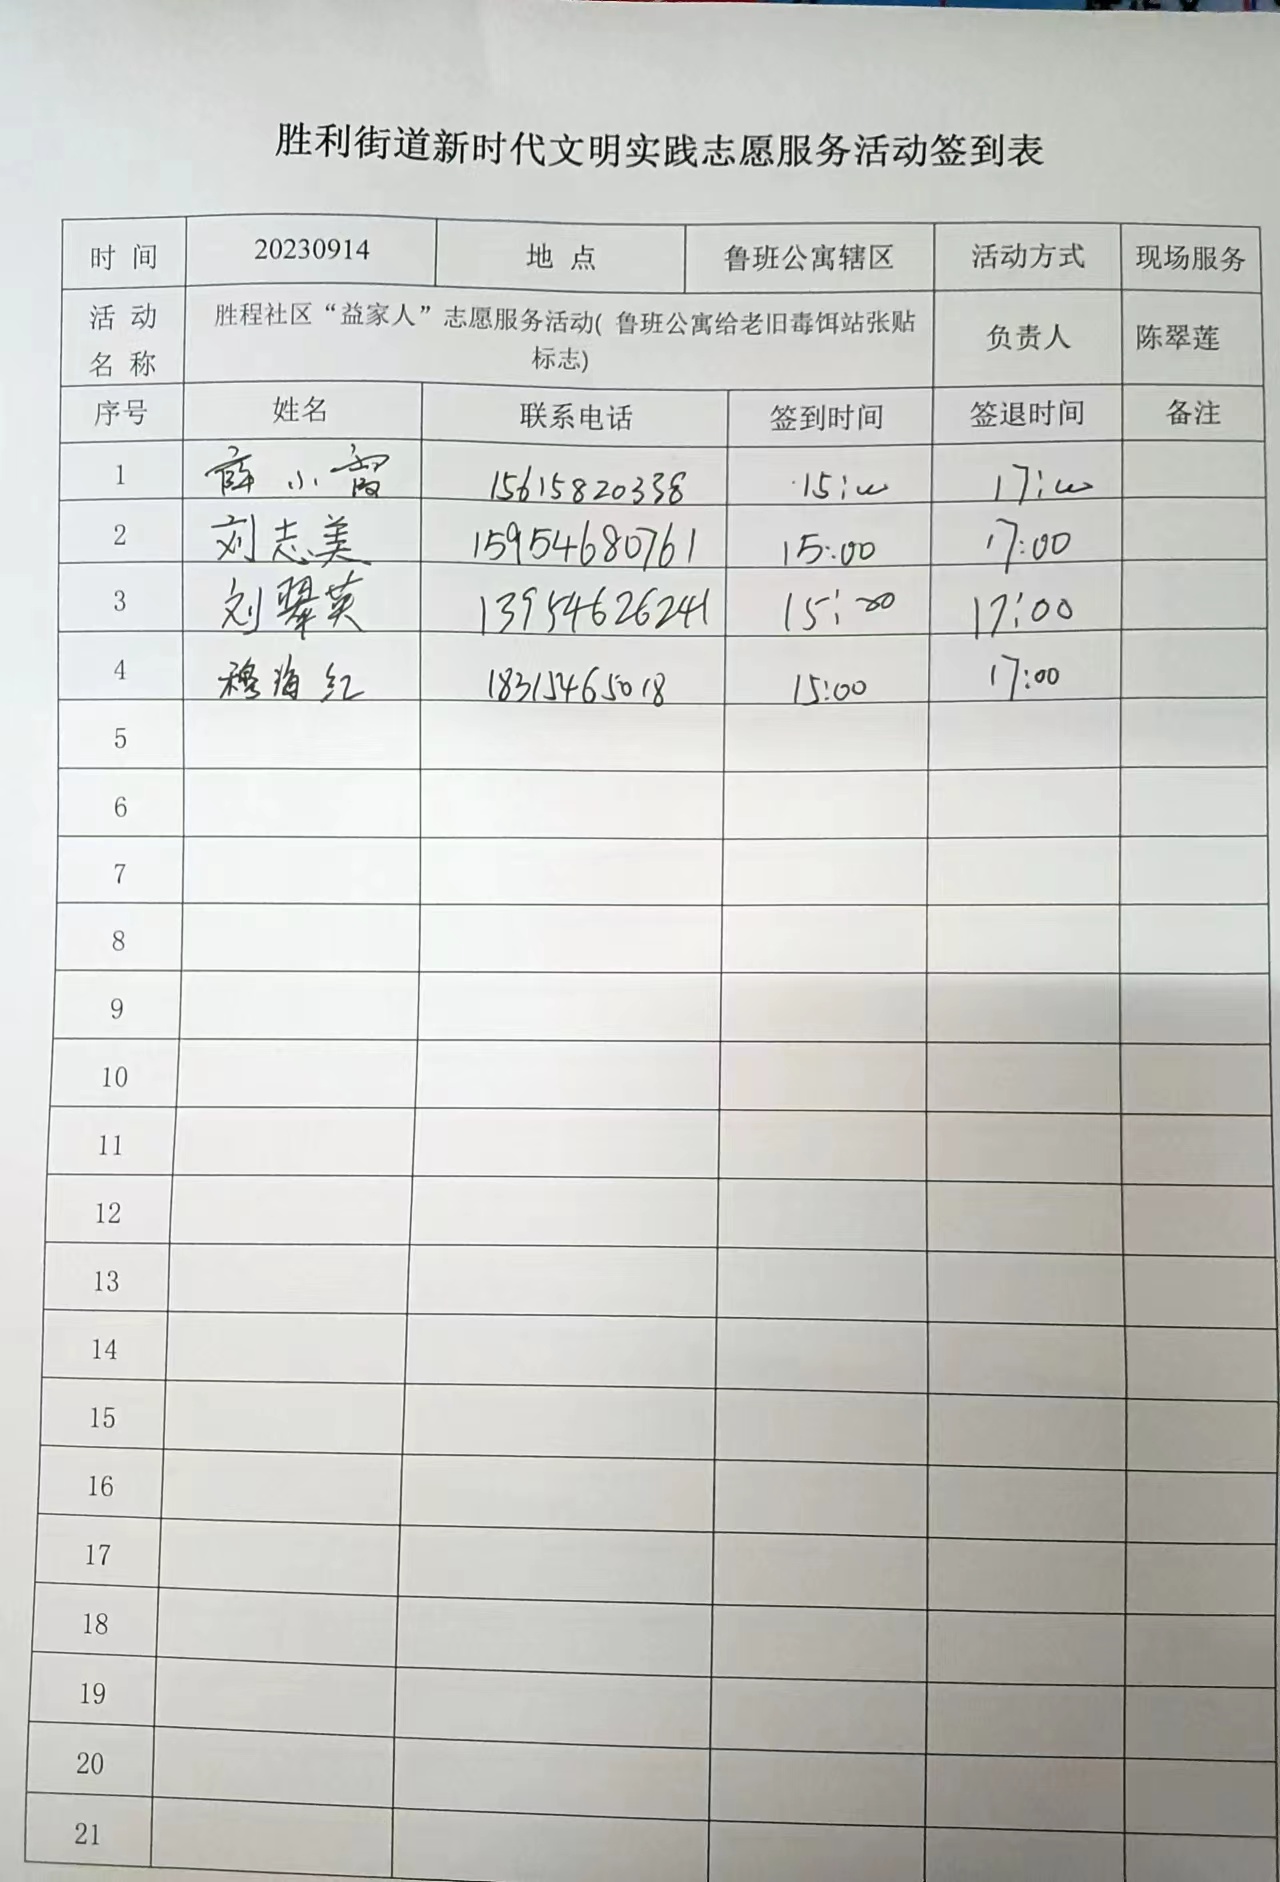 胜利街道新时代文明实践志愿服务活动签到表
时 间 20230914 地 点 鲁班公寓辖区 活动方式 现场服务
活 动 名 称 胜程社区“益家人”志愿服务活动( 鲁班公寓给老旧毒饵站张贴
标志) 负责人 陈翠莲
序号 姓名 联系电话 签到时间 签退时间 备注
1 薛小霞 15615820338 15:00 17:00
2 刘志美 15954680761 15:00 17:00
3 刘翠英 13954626241 15:00 17:00
4 穆海红 18315465018 15:00 17:00
5
6
7
8
9
10
11
12
13
14
15
16
17
18
19
20
21